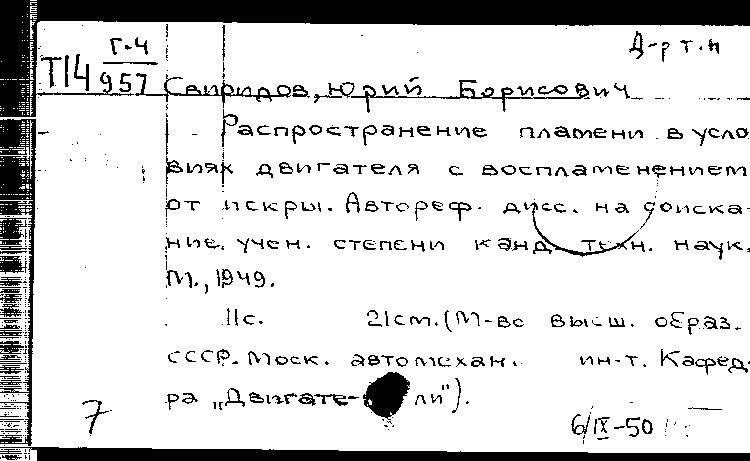 Г.4 Д-р т.н
Т14 957 Свиридов, Юрий Борисович
Распространение пламени в усло
виях двигателя с воспламенением
от искры. Автореф. дисс. на соиска-
ние учен. степени канд. техн. наук.
М., 1949.
11с. 21см. (М-во высш. образ.
СССР. Моск. автомехан. ин-т. Кафед-
ра „Двигате- ли").
7 6/IX-50